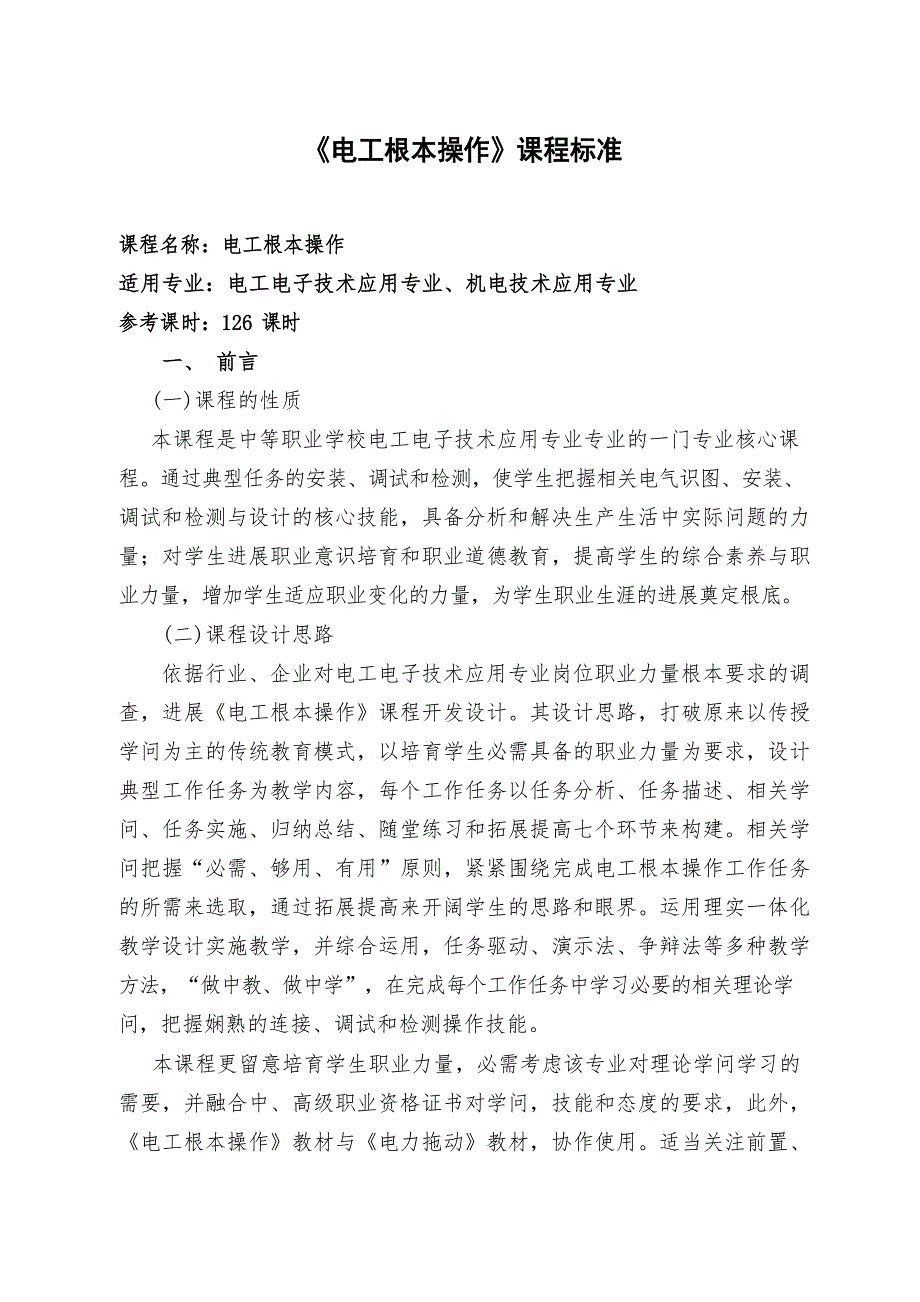 《电工根本操作》课程标准
课程名称：电工根本操作
适用专业：电工电子技术应用专业、机电技术应用专业
参考课时：126 课时
一、 前言
(一)课程的性质
本课程是中等职业学校电工电子技术应用专业专业的一门专业核心课
程。通过典型任务的安装、调试和检测，使学生把握相关电气识图、安装、
调试和检测与设计的核心技能，具备分析和解决生产生活中实际问题的力
量；对学生进展职业意识培育和职业道德教育，提高学生的综合素养与职
业力量，增加学生适应职业变化的力量，为学生职业生涯的进展奠定根底。
(二)课程设计思路
依据行业、企业对电工电子技术应用专业岗位职业力量根本要求的调
查，进展《电工根本操作》课程开发设计。其设计思路，打破原来以传授
学问为主的传统教育模式，以培育学生必需具备的职业力量为要求，设计
典型工作任务为教学内容，每个工作任务以任务分析、任务描述、相关学
问、任务实施、归纳总结、随堂练习和拓展提高七个环节来构建。相关学
问把握“必需、够用、有用”原则，紧紧围绕完成电工根本操作工作任务
的所需来选取，通过拓展提高来开阔学生的思路和眼界。运用理实一体化
教学设计实施教学，并综合运用，任务驱动、演示法、争辩法等多种教学
方法，“做中教、做中学”，在完成每个工作任务中学习必要的相关理论学
问，把握娴熟的连接、调试和检测操作技能。
本课程更留意培育学生职业力量，必需考虑该专业对理论学问学习的
需要，并融合中、高级职业资格证书对学问，技能和态度的要求，此外，
《电工根本操作》教材与《电力拖动》教材，协作使用。适当关注前置、